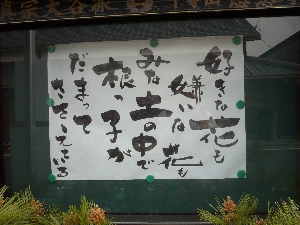 好きな花も
嫌いな花も
みな土の中で
根っ子が
だまって
ささえている